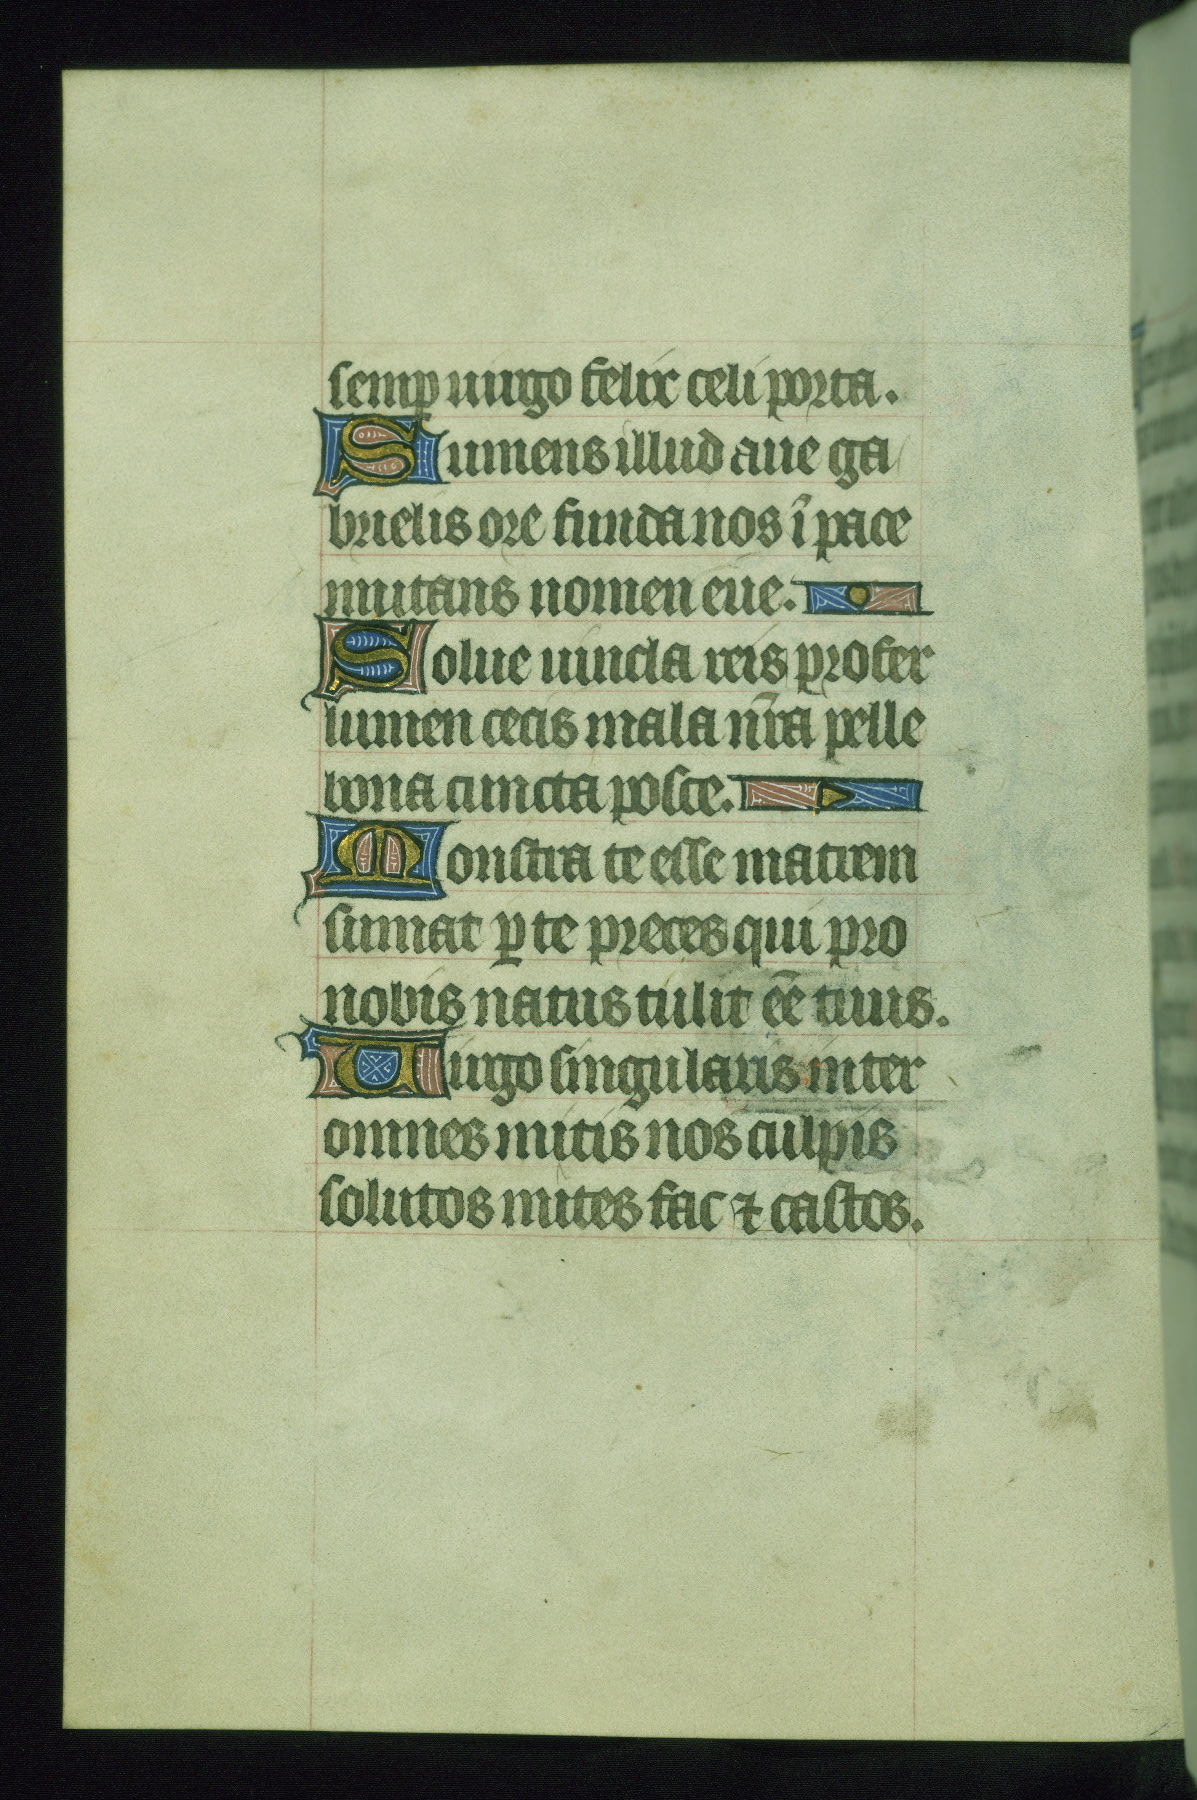 semp uirgo felix celi porta.
Sumens illud aue ga
brielis ore funda nos ī pace
mutans nomen eue.
Solue uincla reis profer
lumen cecis mala nr̄a pelle
bona cuncta posce.
Monstra te esse matrem
sumat ꝑ te preces qui pro
nobis natus tulit eē tuus.
Uirgo singularis inter
omnes mitis nos culpis
solutos mites fac ⁊ castos.